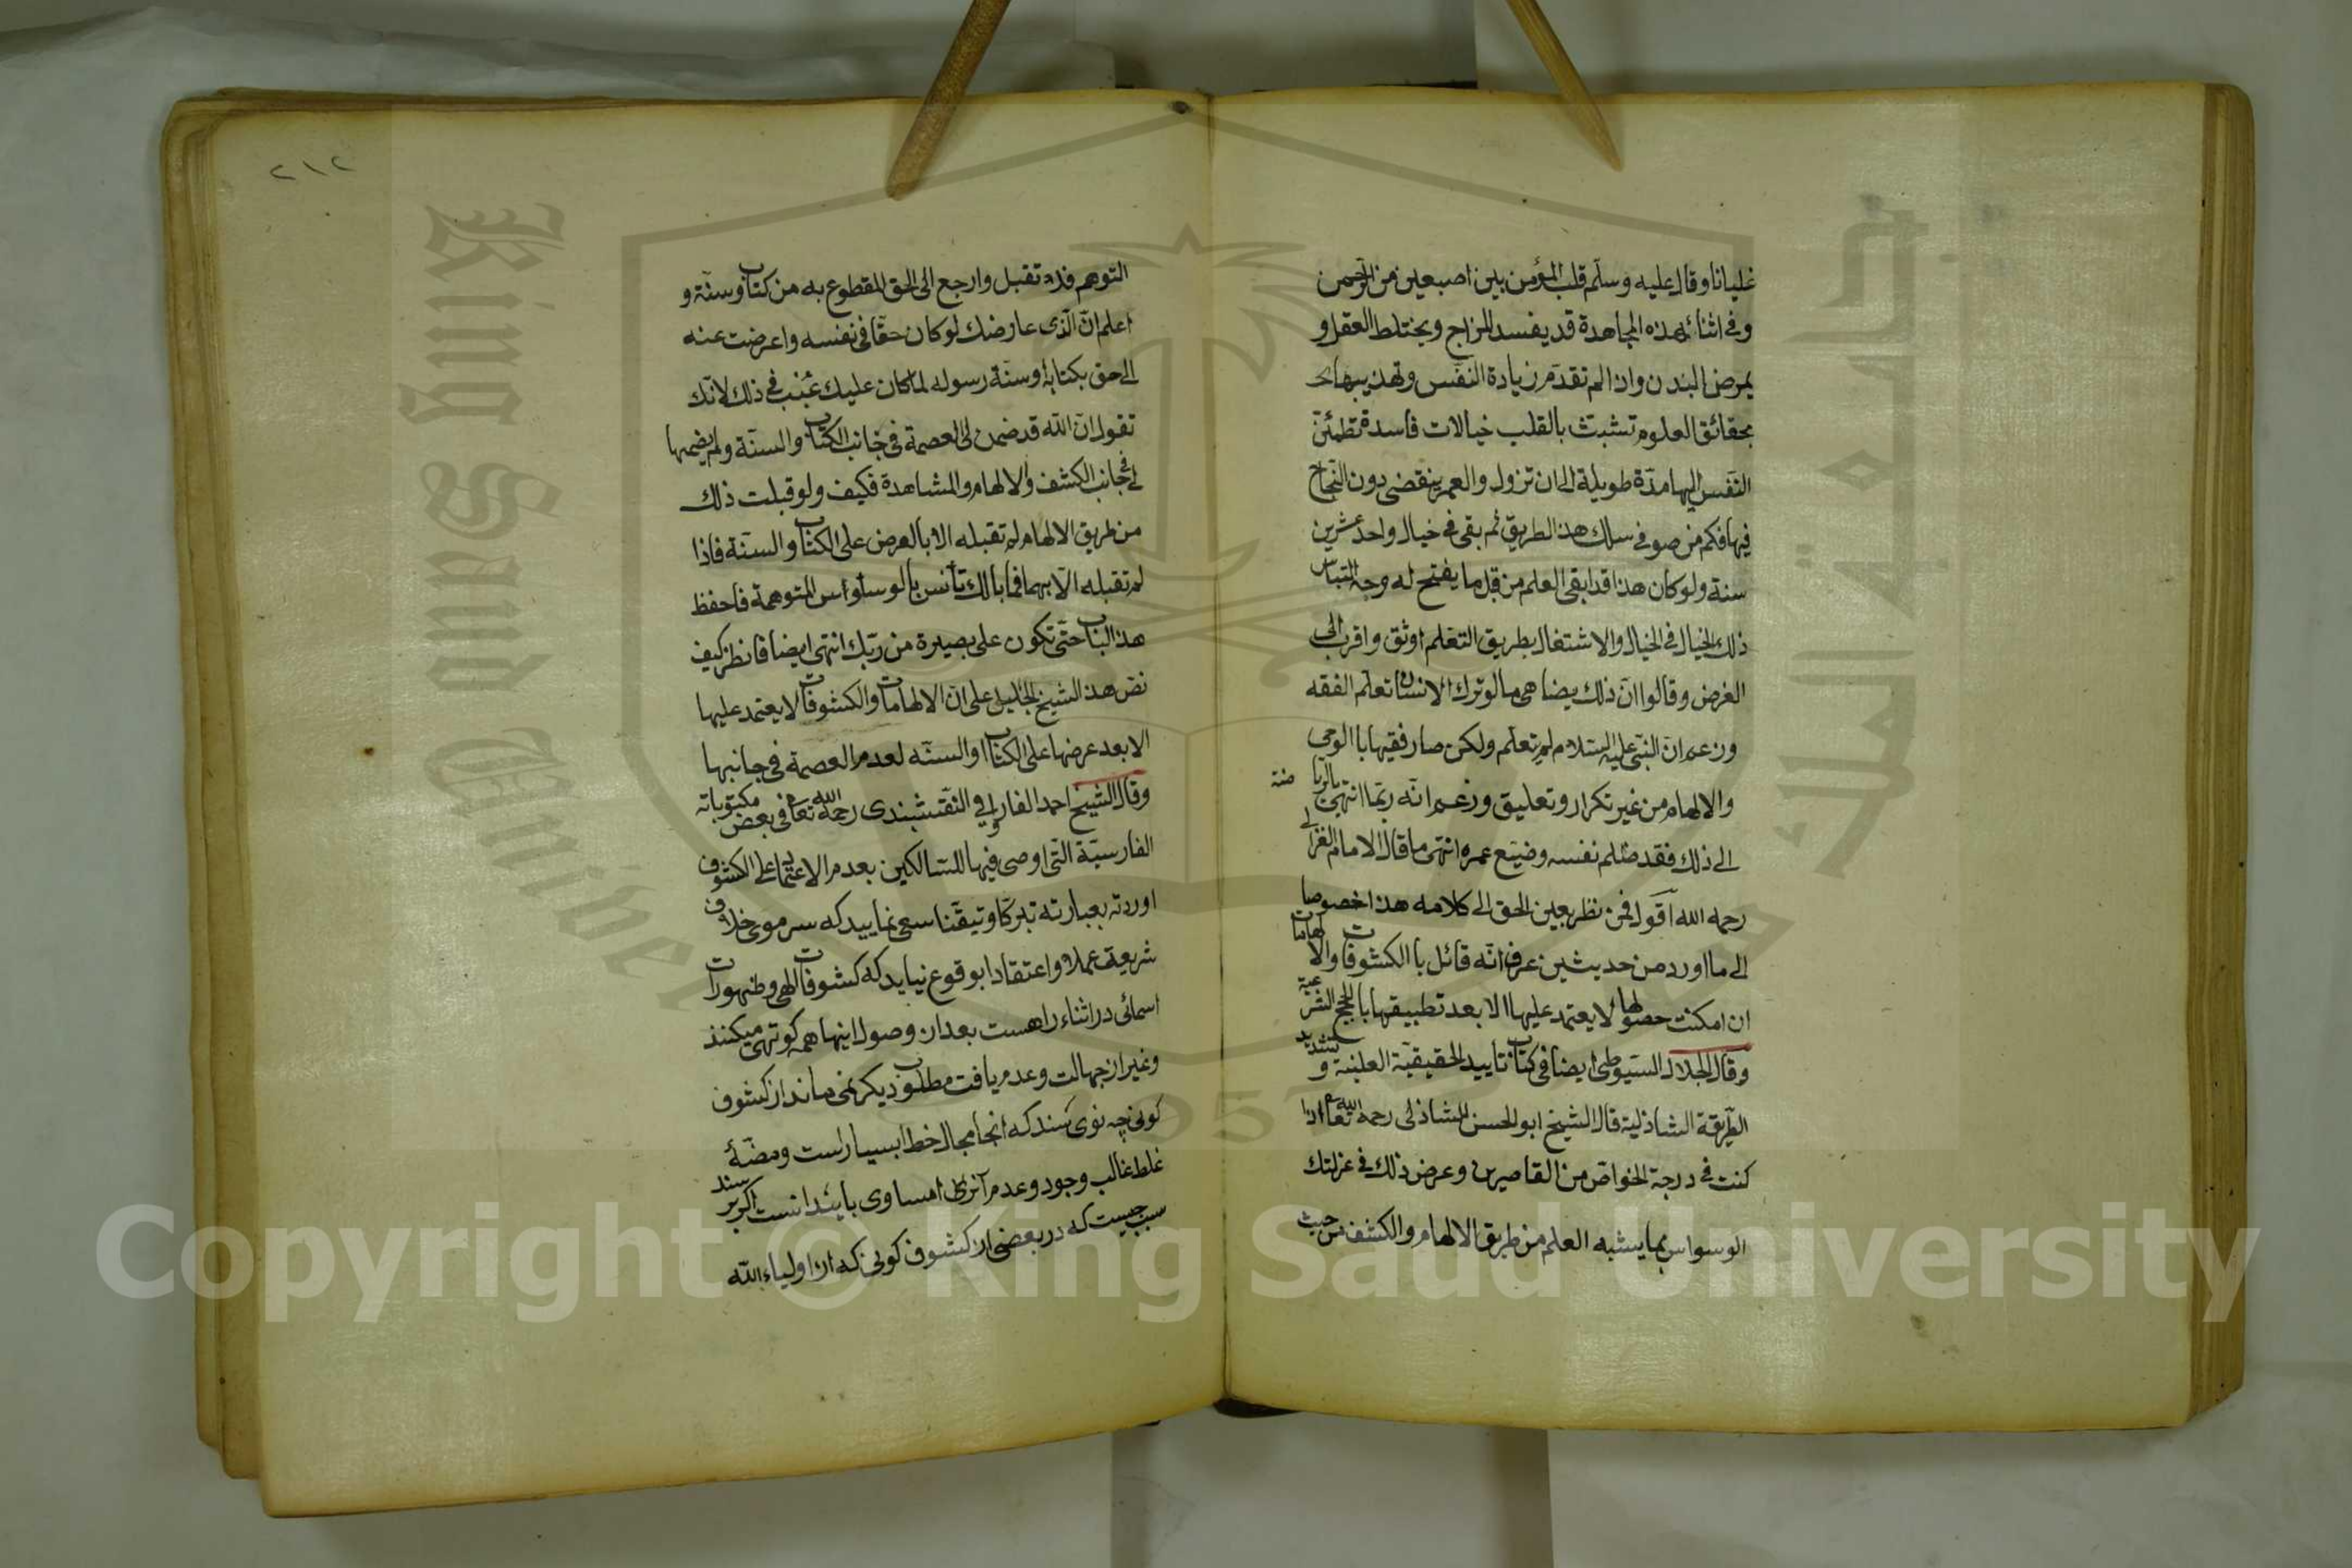 غليانا وقال عليه وسلم قلب المؤمن بين اصبعين من الرحمن
وفي اثناء هذه المجاهدة قد يفسد المزاج ويختلط العقل و
يمرض البدن وان لم تقدم زيادة النفس وتهذيبها
بحقائق العلوم تشبث بالقلب خيالات فاسدة تطمئن
النفس اليها مدة طويلة الى ان تزول والعمر ينقضي دون النجاح
فيها فكم من صوفي سلك هذا الطريق ثم بقي في خيال واحد عشرين
سنة ولو كان هذا قد ابقى العلم من قبل ما يفتح له وجه التباس
ذلك الخيال في الخيال والاشتغال بطريق التعلم اوثق واقرب الى
الغرض وقالوا ان ذلك يضاهي ما لو ترك الانسان تعلم الفقه
وزعم ان النبي عليه السلام لم تعلم ولكن صار فقيها با الوحي
والالهام من غير تكرار وتعليق وزعم انه ربما انتهى بالريا ضته
الى ذلك فقد ظلم نفسه وضيع عمره انتهى ما قال الامام الغزالي
رحمه الله اقول فمن نظر بعين الحق الى كلامه هذا خصوصا
الى ما اورد من حديثين عرف انه قائل با الكشوفات والالهامات
ان امكنت حصولها لا يعتمد عليها الا بعد تطبيقها با الحجج الشرعية
وقال الجلال السيوطي ايضا في كتاب تاييد الحقيقية العلية و تشديد
الطريقة الشاذلية قال الشيخ ابو الحسن الشاذلي رحمه الله تعا اذا
كنت في درجة الخواص من القاصرين وعرض ذلك في عزلتك
الوسواس بما يشبه العلم من طريق الالهام والكشف من حيث
٢١٢
التوهم فلا تقبل وارجع الى الحق المقطوع به من كتاب وسنة و
اعلم ان الذي عارضك لو كان حقا في نفسه واعرضت عنه
الى حق بكتابه او سنة رسوله لما كان عليك عتب في ذلك لانك
تقول ان الله قد ضمن لي العصمة في جانب الكتاب والسنة ولم يضمها
لي في جانب الكشف والالهام والمشاهدة فكيف ولو قبلت ذلك
من طريق الالهام لم تقبله الا بالعرض على الكتاب والسنة فاذا
لم تقبله الا بهما فما بالك تأنس با لوساوس المتوهمة فاحفظ
هذا الباب حتى تكون على بصيرة من ربك انتهى ايضا فانظر كيف
نص هذا الشيخ الجليل على ان الالهامات والكشوفات لا يعتمد عليها
الا بعد عرضها على الكتاب او السنه لعدم العصمة في جانبها
وقال الشيخ احمد الفاروقي النقشبندى رحمه الله تعا في بعض مكتوباته
الفارسية التي اوصى فيها للسالكين بعدم الاعتماد على الكشوف
اوردته بعبارته تبركا وتيقنا سعى نماييد كه سر موى خلاف
شريعت عملا واعتقادا بوقوع نيايد كه كشوفات الهى وظهورات
اسمائى در اثناء راهست بعد از وصول اينها همه كوتهى ميكنند
وغير از جهالت وعدم يافت مطلوب ديكر نمى ماند از كشوف
كونى چه نوى سند كه انجا مجال خطا بسيار است ومضنه
غلط غالب وجود وعدم آنرا مساوى بايد دانست اكر پرسند
سبب چيست كه در بعضى از كشوف كونى كه از اولياء الله